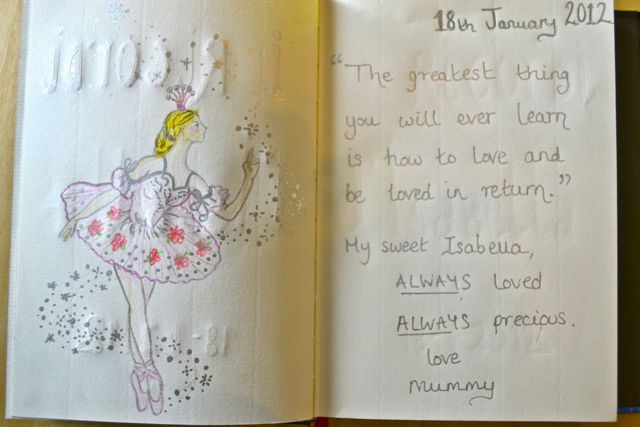 18th January 2012
"The greatest thing
you will ever learn
is how to love and
be loved in return."
My sweet Isabella,
ALWAYS loved
ALWAYS precious.
love
Mummy